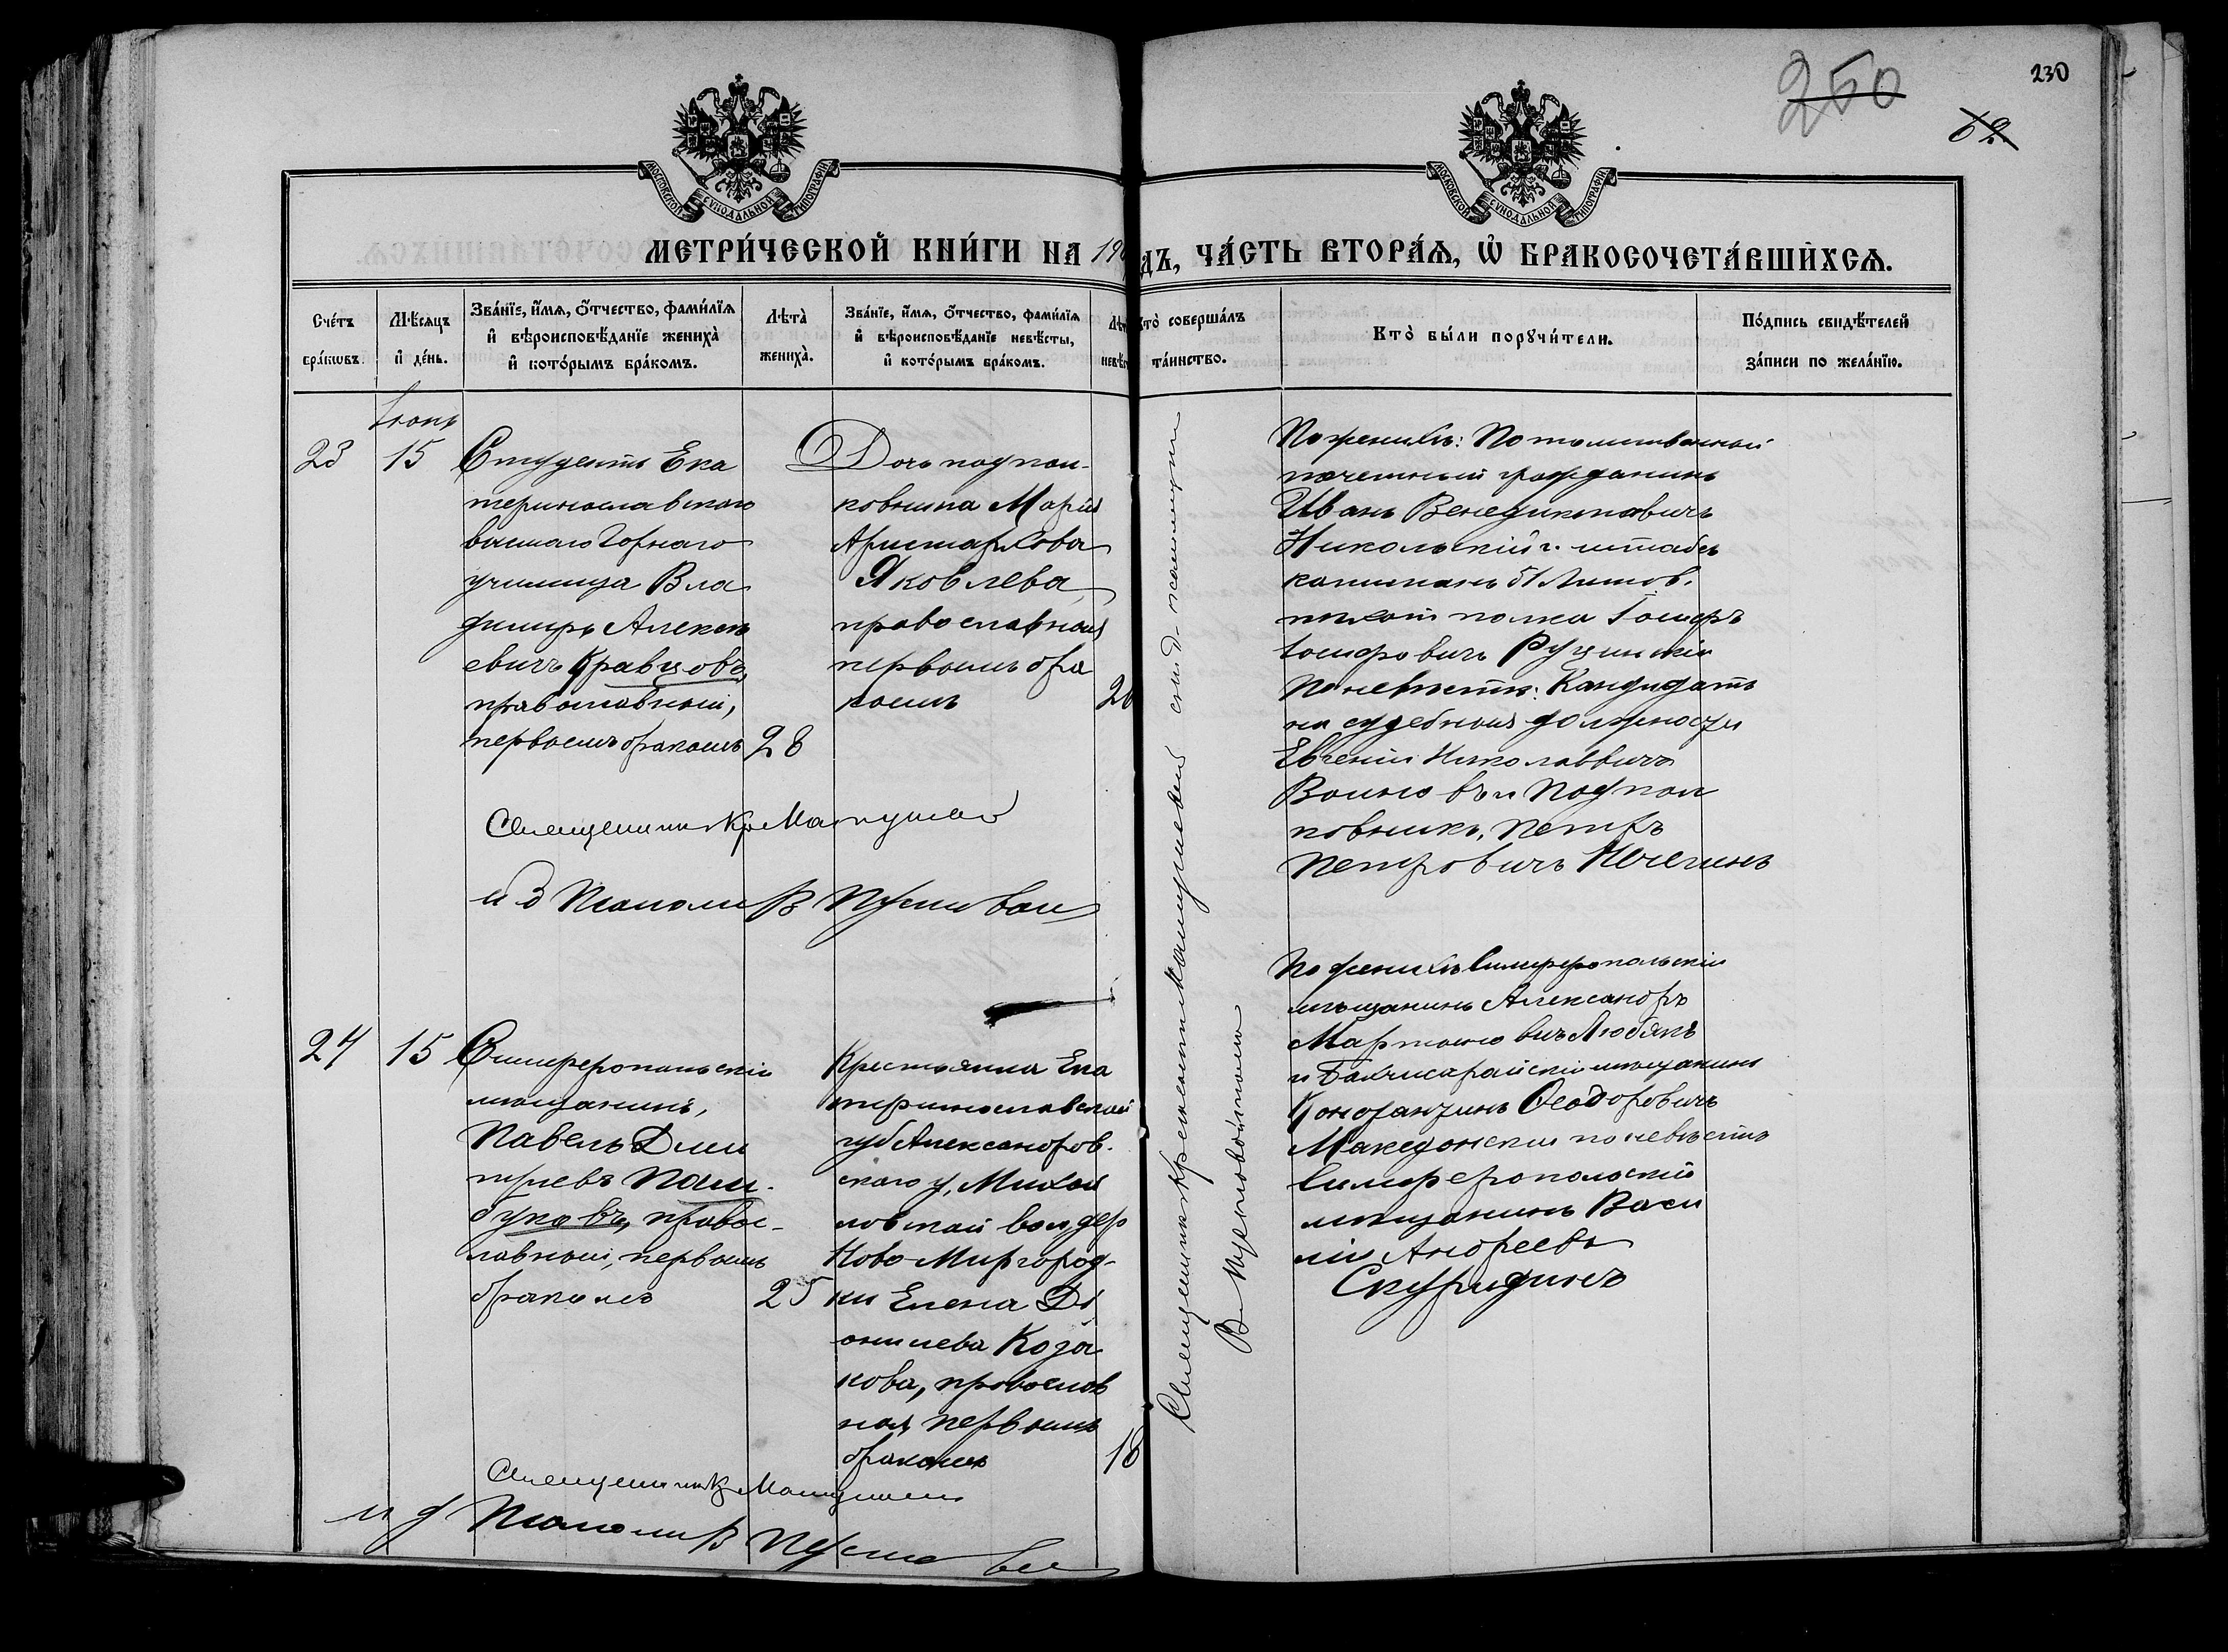 250
230
62
МОСКОВСКОЙ СѴНОДАЛЬНОЙ ТИПОГРАФІИ
МОСКОВСКОЙ СѴНОДАЛЬНОЙ ТИПОГРАФІИ
МЕТРИ́ЧЕСКОЙ КНИ́ГИ НА 190
ДЪ, ЧА́СТЬ ВТОРА́Ѧ, Ѡ҆ БРАКОСОЧЕТА́ВШИХСѦ.
Сче́тъ бра́кѡвъ.
Мѣ́сѧцъ и҆ де́нь.
Зва́нїе, и҆́мѧ, ѻ҆́тчество, фами́лїѧ
и҆ вѣроисповѣ́данїе жениха̀
и҆ кото́рымъ бра́комъ.
Лѣта̀ жениха̀.
Зва́нїе, и҆́мѧ, ѻ҆́тчество, фами́лїѧ
и҆ вѣроисповѣ́данїе невѣ́сты,
и҆ кото́рымъ бра́комъ.
Лѣт
невѣс
то̀ соверша́лъ
та́инство.
Кто̀ бы́ли порꙋчи́тели.
По́дпись свидѣ́телей
за́писи по жела́нїю.
Іюнь
23
15
Студентъ Ека
теринославскаго
высшаго Горнаго
училища Вла
димиръ Алексѣ
евичъ Кравцовъ,
православный,
первымъ бракомъ
28
Дочь подпол-
ковника Марія
Аристархова
Яковлева,
православная
первымъ бра
комъ
26
По женихѣ: Потомственный
почетный гражданинъ
Иванъ Венедиктовичъ
Никольскій и штабсъ
капитанъ 51 Литов.
пѣхот полка Іосифъ
Іосифовичъ
По невѣстѣ: Кандидатъ
на судебныя должности
Евгеній Николаевичъ
и Подпол
ковникъ, Петръ
Петровичъ
Священникъ Кр
и д Псаломщ В
24
15
Симферопольскій
мѣщанинъ,
Павелъ Дми
тріевъ Паш-
буковъ, правос-
лавный, первымъ
бракомъ
25
Крестьянка Ека
теринославской
губ Александров.
скаго у, Михай
ловской вол, дер
Ново Миргород-
ки Елена Ді
онисиева Коза
кова, православ
ная, первымъ
бракомъ
18
По женихѣ Симферопольскій
мѣщанинъ Александръ
Мартыновичъ Любякъ
и Бахчисарайскій мѣщанинъ
Константинъ Ѳеодоровичъ
Македонскій по невѣстѣ
Симферопольскій
мѣщанинъ Васи
лій Андреевъ
Скуридинъ
Священникъ
и д Псаломщ В